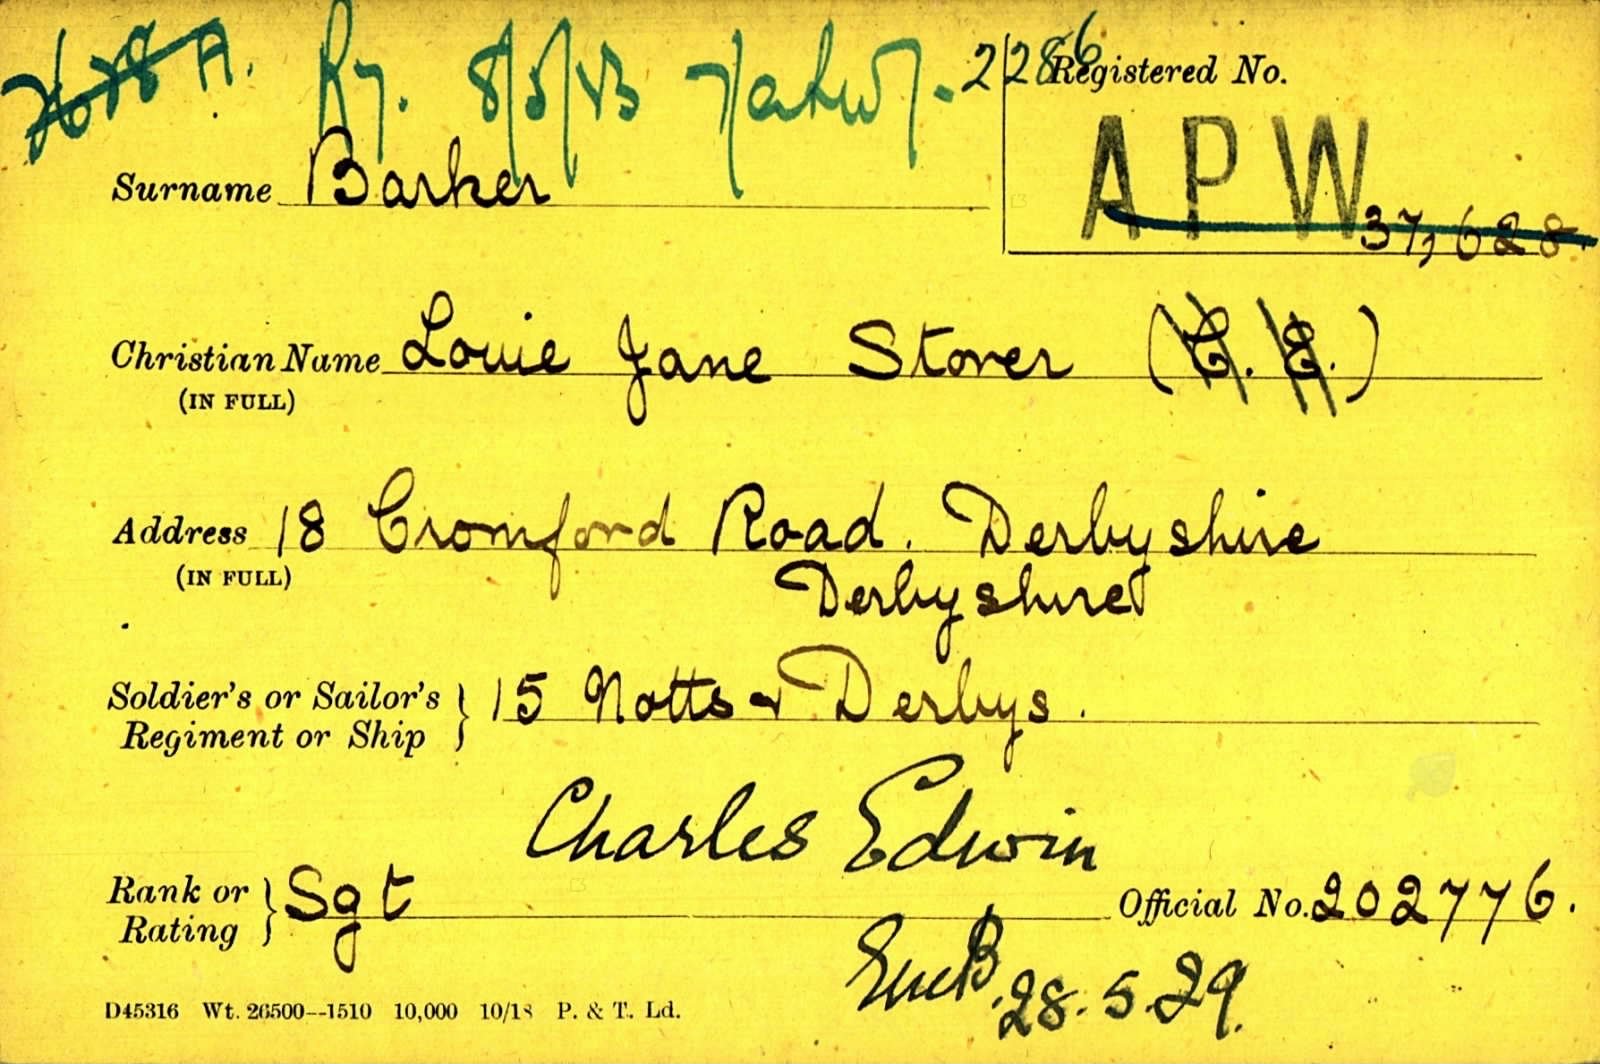 Ry. 8/5/43 2/286
Registered No.
A P W 37,628.
Surname Barker
Christian Name Louie Jane Stover (C. E.)
(IN FULL)
Address 18 Cromford Road. Derbyshire
(IN FULL) Derbyshire
Soldier's or Sailor's Regiment or Ship } 15 Notts & Derbys.
Charles Edwin
Rank or Rating } Sgt Official No. 202776.
28.5.29.
D45316 Wt. 26500--1510 10,000 10/18 P. & T. Ld.